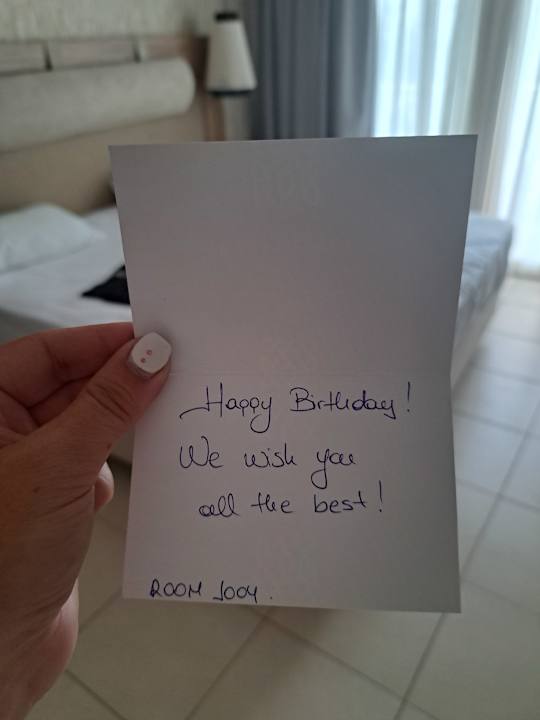 Happy Birthday!
We wish you
all the best!
ROOM 1004.